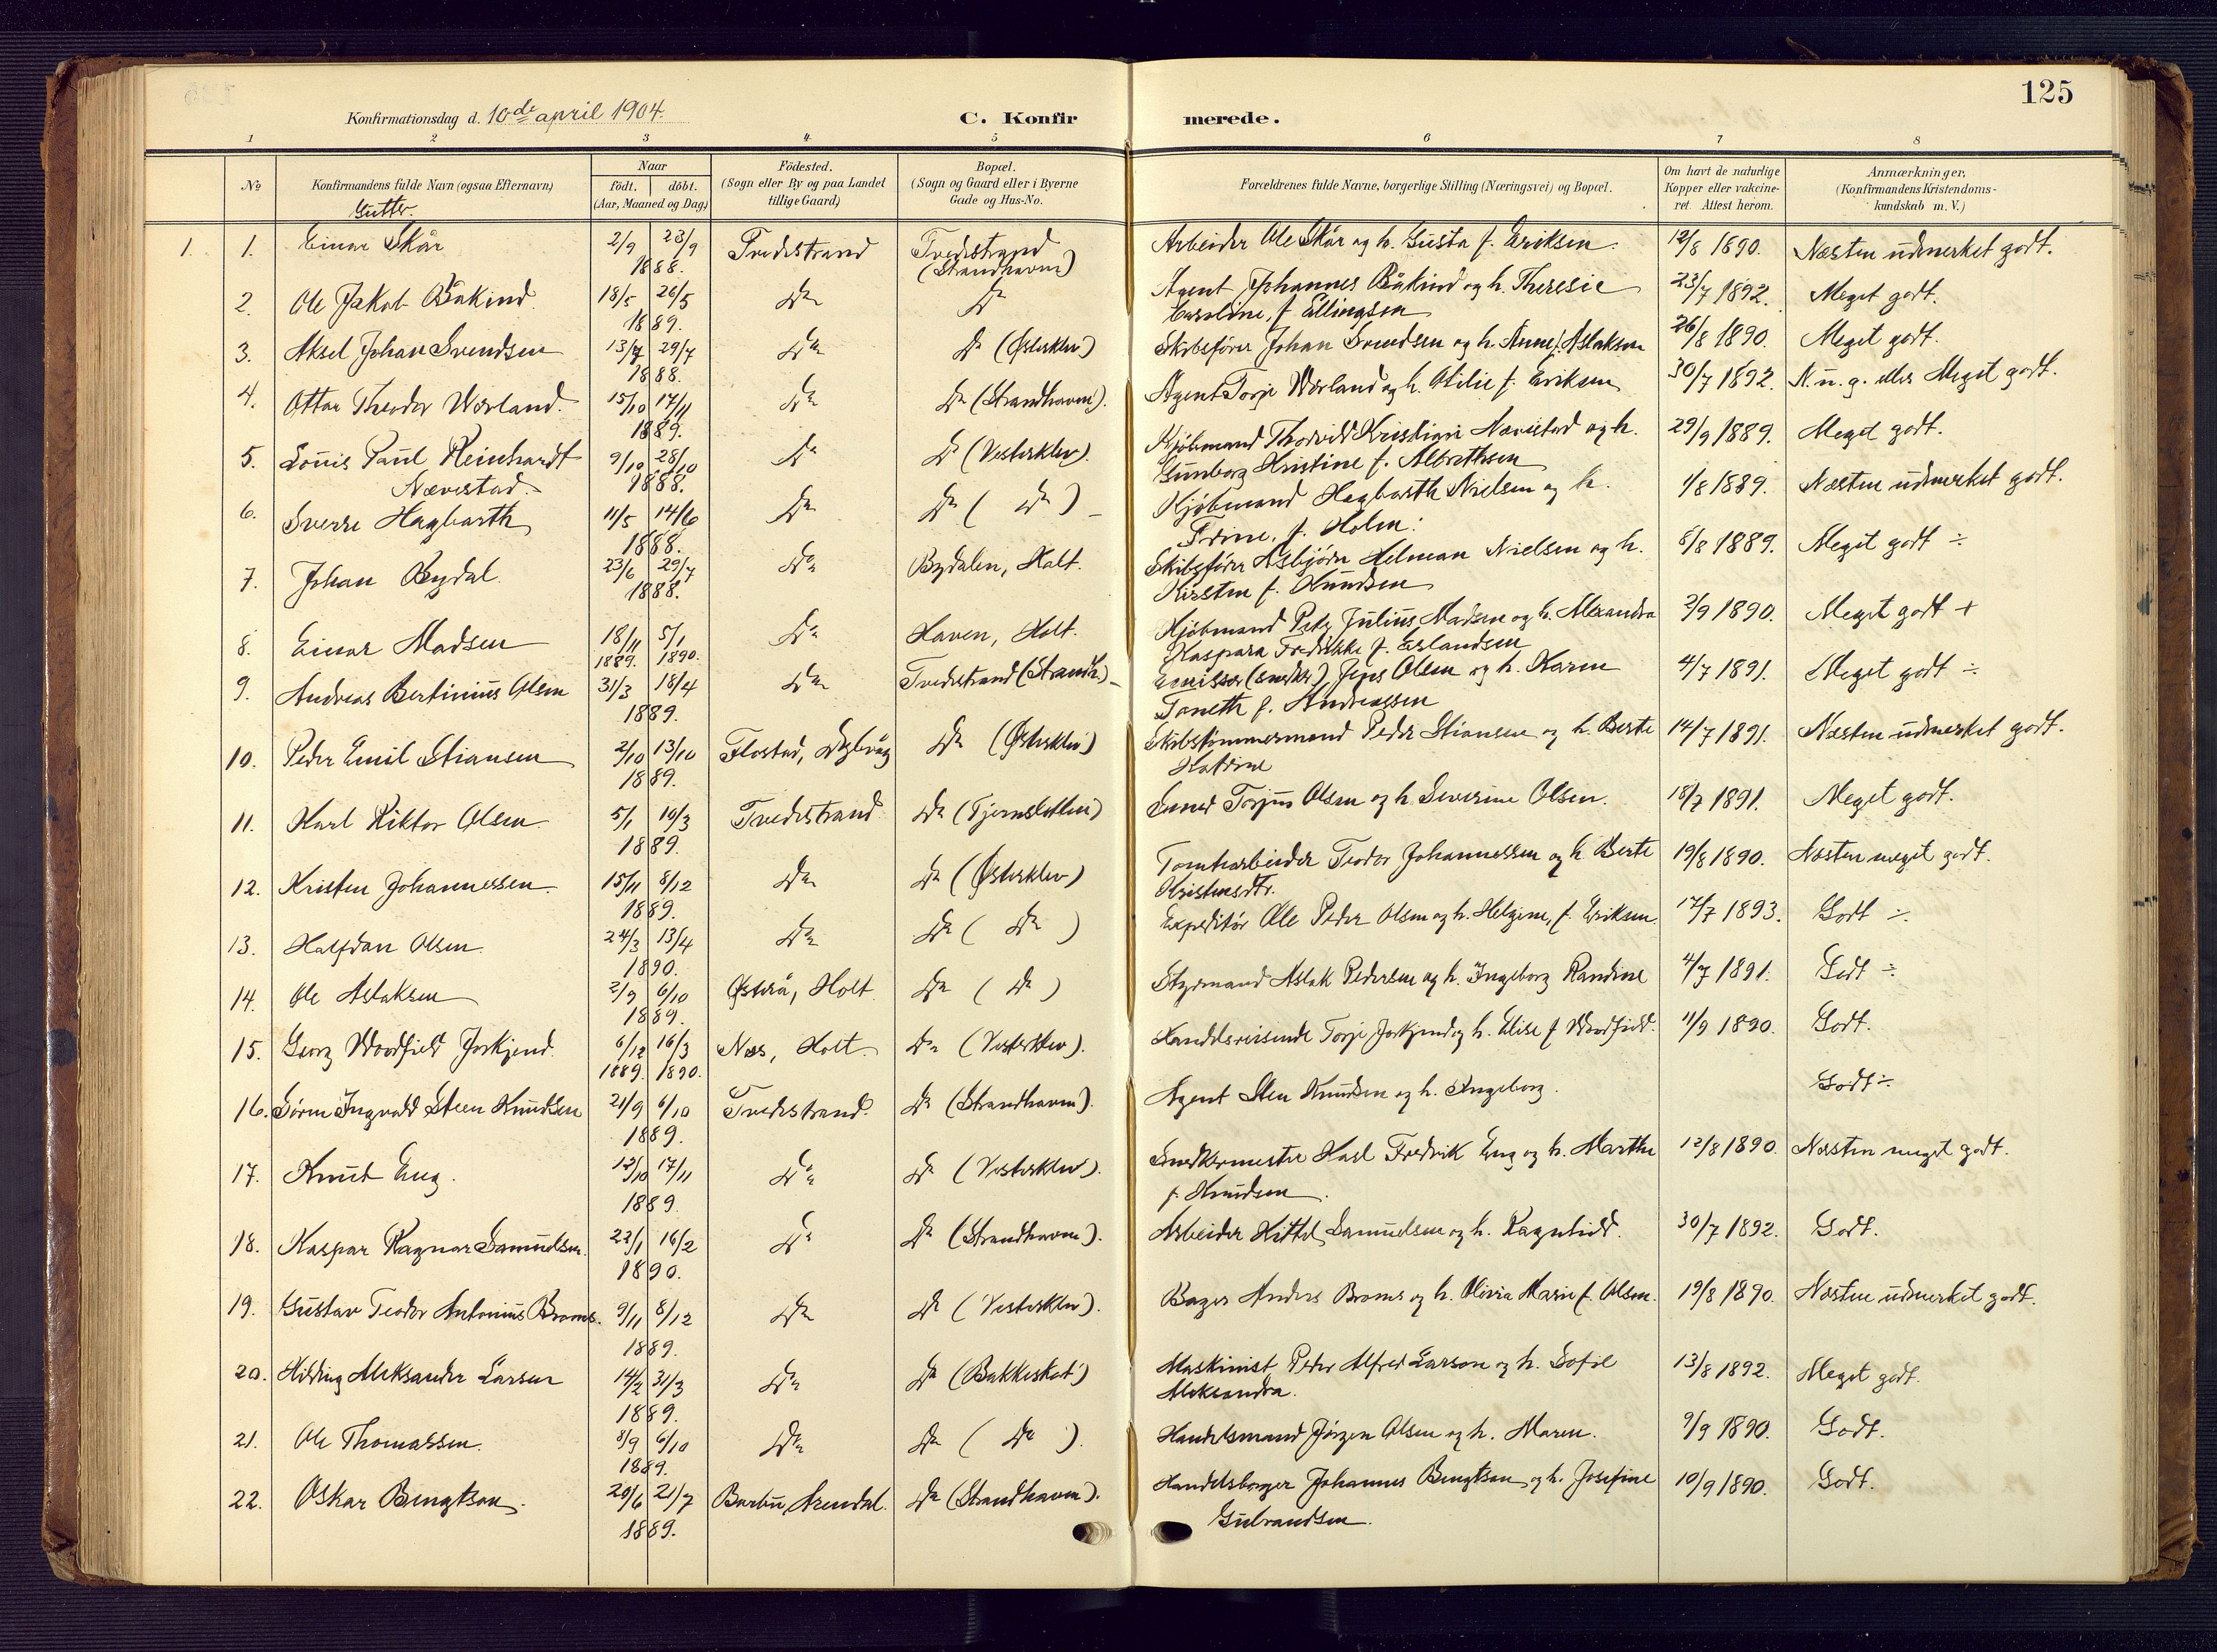 125
Konfirmationsdag d. 10de april 1904.
C. Konfirmerede.
1 2 3 4 5 6 7 8
No
Konfirmandens fulde Navn (ogsaa Efternavn)
Naar
födt. döbt.
(Aar, Maaned og Dag)
Födested.
(Sogn eller By og paa Landet
tillige Gaard)
Bopæl.
(Sogn og Gaard eller i Byerne
Gade og Hus-No.
Forældrenes fulde Navne, borgerlige Stilling (Næringsvei) og Bopæl.
Om havt de naturlige
Kopper eller vakcine-
ret. Attest herom.
Anmærkninger,
(Konfirmandens Kristendoms-
kundskab m. V.)
Gutter.
1. 1. Einar Skår 2/9 23/9 1888. Tvedestrand Tvedestrand (Strandhaven) Arbeider Ole Skår og h. Gusta f. Eriksen. 12/8 1890. Næsten udmerket godt.
2. Ole Jakob Båkind 18/5 26/5 1889. Do Do Agent Johannes Båkind og h. Theresie Caroline, f Ellingsen 23/7 1892. Meget godt.
3. Aksel Johan Svendsen 13/7 29/7 1888. Do Do (Østerklev) Skibsfører Johan Svendsen og h. Anne f. Aslaksen 26/8 1890. Meget godt.
4. Ottar Theodor Wærland. 15/10 17/11 1889. Do Do (Strandhaven). Agent Torje Wærland og h. Otilie f. Eriksen 30/7 1892. N. u. g. eller Meget godt.
5. Louis Paul Reinhardt Nævestad. 9/10 28/10 1888. Do Do (Vesterklev). Kjøbmand Thorvald Kristian Nævestad og h. Gunborg Kristine f. Albrethsen 29/9 1889. Meget godt.
6. Sverre Hagbarth 11/5 14/6 1888. Do Do ( Do ) Kjøbmand Hagbarth Nielsen og h. Trine, f. Holm. 1/8 1889. Næsten udmerket godt.
7. Johan Bydal. 23/6 29/7 1888. Do Bydalen, Holt. Skibsfører Asbjörn Helman Nielsen og h. Kirsten f. Knudsen 8/8 1889. Meget godt ÷
8. Einar Madsen 18/11 1889. 5/1 1890. Do Haven, Holt. Kjøbmand Peter Julius Madsen og h. Alexandra Kaspara Fredrikke f. Erlandsen 2/9 1890. Meget godt +
9. Andreas Bertinius Olsen 31/3 18/4 1889. Do Tvedestrand (Strandh.) Emissær (snedker) Jens Olsen og h. Karen Taneth f. Andreassen 4/7 1891. Meget godt ÷
10. Peder Emil Stiansen 2/10 13/10 1889. Flostad, Do (Østerklev) Skibstømmermand Peder Stiansen og h. Berte Katrine 14/7 1891. Næsten udmerket godt.
11. Karl Viktor Olsen. 5/1 10/3 1889. Tvedestrand Do (Tjernsletten) Smed Torjus Olsen og h. Severine Olsen. 18/7 1891. Meget godt.
12. Kristen Johannessen. 15/11 8/12 1889. Do Do (Østerklev) Tomtearbeider Teodor Johannessen og h. Berte Kristensdtr. 19/8 1890. Næsten meget godt.
13. Halfdan Olsen. 24/3 13/4 1890. Do Do ( Do ) Expeditör Ole Peder Olsen og h. Helgine, f. Eriksen. 17/7 1893. Godt ÷
14. Ole Aslaksen 2/9 6/10 1889. Østerå, Holt. Do ( Do ) Styrmand Aslak Pedersen og h. Ingeborg Randine 4/7 1891. Godt ÷
15. Georg Woodfield Joskjend. 6/12 1889. 16/3 1890. Næs, Holt. Do (Vesterklev). Handelsreisende Torje Joskjend og h. Elise f Woodfield. 11/9 1890. Godt.
16. Sören Ingvald Steen Knudsen 21/9 6/10 1889. Tvedestrand. Do (Strandhaven). Agent Sten Knudsen og h. Ingeborg. Godt ÷
17. Knut Eng. 12/10 17/11 1889. Do Do (Vesterklev). Snedkermester Karl Fredrik Eng og h. Marthe f. Knudsen. 12/8 1890. Næsten meget godt.
18. Kaspar Ragnar Samuelsen. 22/1 16/2 1890. Do Do (Strandhaven). Arbeider Kittel Samuelsen og h. Ragnhild. 30/7 1892. Godt.
19. Gustav Teodor Antonius Broms. 9/11 8/12 1889. Do Do (Vesterklev). Bager Anders Broms og h. Olivia Marie f. Olsen. 19/8 1890. Næsten udmerket godt.
20. Hilding Aleksander Larsen 14/2 31/3 1889. Do Do (Bakkeskot) Maskinist Peder Alfred Larson og h. Sofie Aleksandra. 13/8 1892. Meget godt.
21. Ole Thomassen. 8/9 6/10 1889. Do Do ( Do ). Handelsmand Jörgen Olsen og h. Maren. 9/9 1890. Godt.
22. Oskar Bengtson. 20/6 21/7 1889. Barbu, Arendal. Do (Strandhaven). Handelsborger Johannes Bengtson og h. Josefine Gulbrandsen. 10/9 1890. Godt.